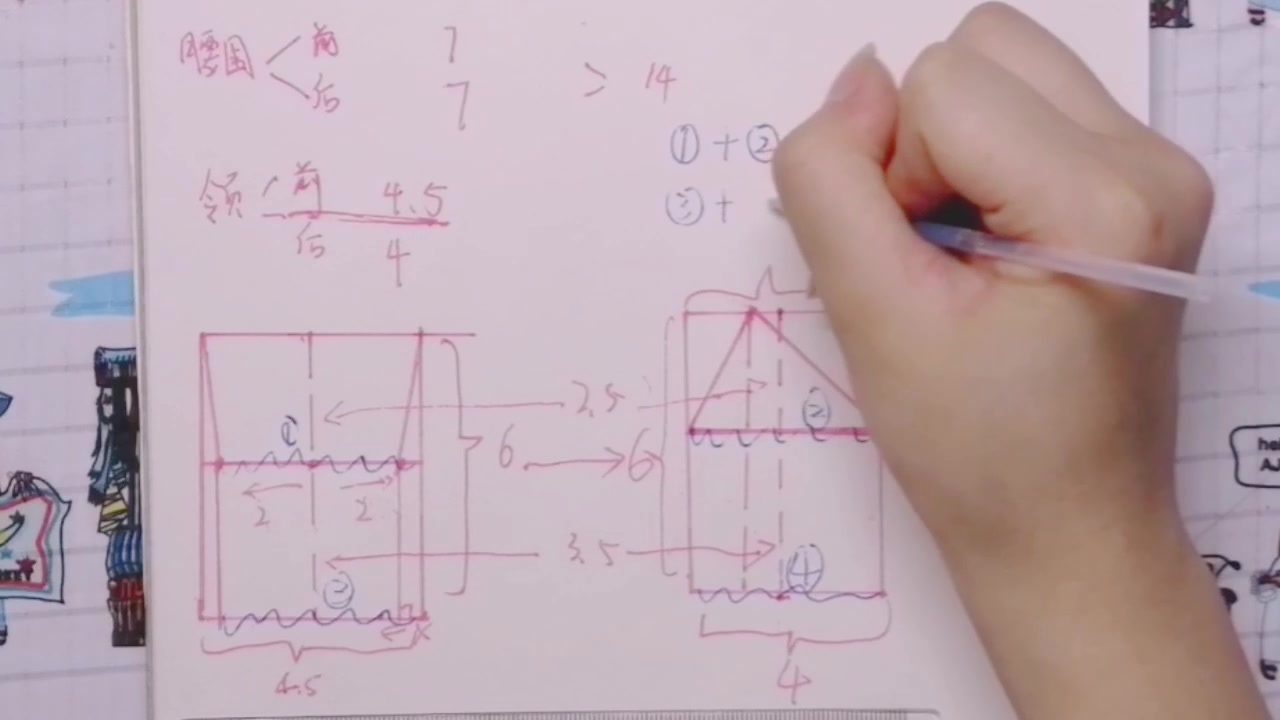 腰围 前 7
后 7 > 14
① + ②
领 前 4.5
③ +
后 4
① ②
2.5
6 6
2 2
3.5
③ ④
4.5 4